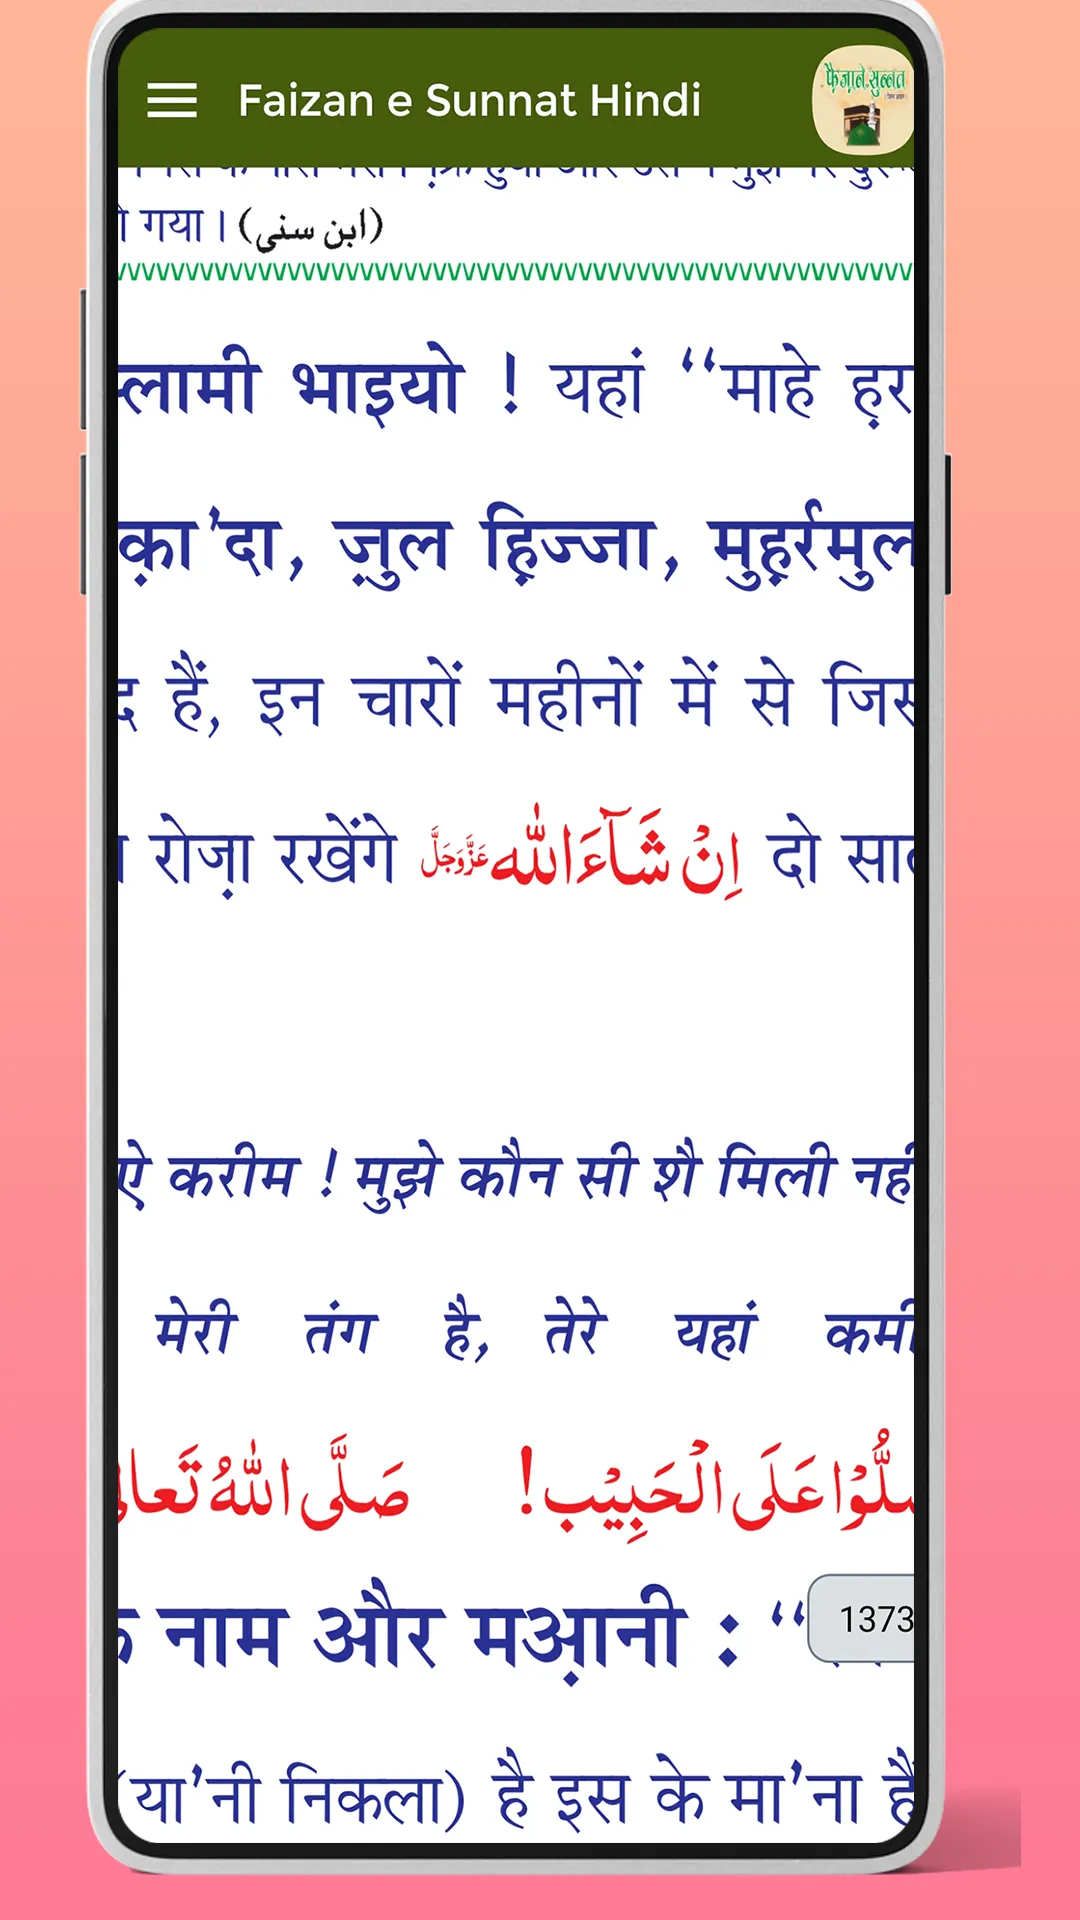 Faizan e Sunnat Hindi
फ़ैज़ाने सुन्नत
गया । (ابن سنی)
लामी भाइयो ! यहां ‘‘माहे ह़र
क़ा’दा, ज़ुल ह़िज्जा, मुह़र्रमुल
द हैं, इन चारों महीनों में से जिस
रोज़ा रखेंगे اِنْ شَآءَاللّٰه عَزَّوَجَلَّ दो सा
ऐ करीम ! मुझे कौन सी शै मिली नहीं
मेरी तंग है, तेरे यहां कमी
صَلُّوْا عَلَى الْحَبِيْب! صَلَّى اللّٰهُ تَعَالٰى
नाम और मअ़ानी : ‘‘
1373
(या’नी निकला) है इस के मा’ना हैं